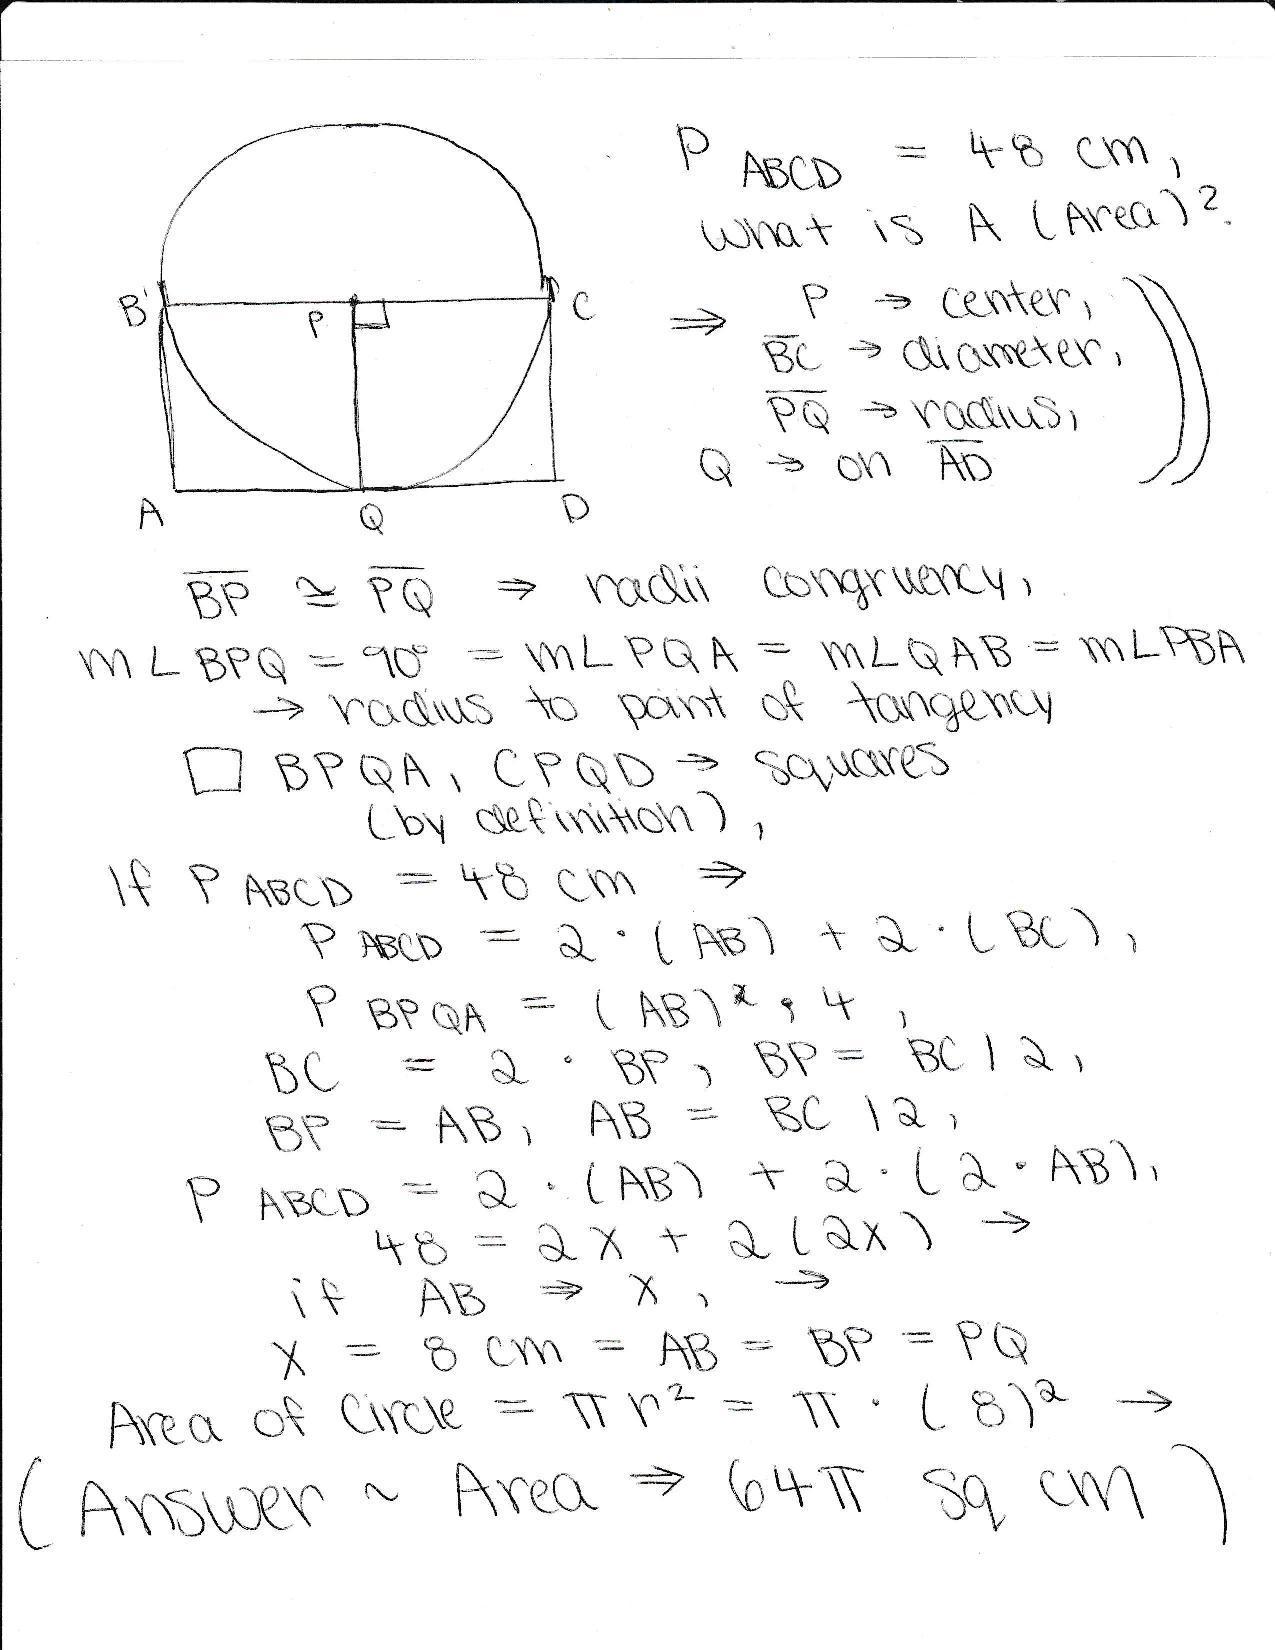 P ABCD = 48 cm,
what is A (Area)?
B
P
C
A
Q
D
⇒ P → center,
B̅C̅ → diameter,
P̅Q̅ → radius,
Q → on A̅D̅ ))
B̅P̅ ≅ P̅Q̅ ⇒ radii congruency,
m∠BPQ = 90° = m∠PQA = m∠QAB = m∠PBA
→ radius to point of tangency
□ BPQA, CPQD → squares
(by definition),
If P ABCD = 48 cm ⇒
P ABCD = 2 · (AB) + 2 · (BC),
P BPQA = (AB) · 4,
BC = 2 · BP, BP = BC / 2,
BP = AB, AB = BC / 2,
P ABCD = 2 · (AB) + 2 · (2 · AB),
48 = 2x + 2(2x) →
if AB ⇒ x, →
x = 8 cm = AB = BP = PQ
Area of Circle = πr² = π · (8)² →
(Answer ~ Area ⇒ 64π sq cm)